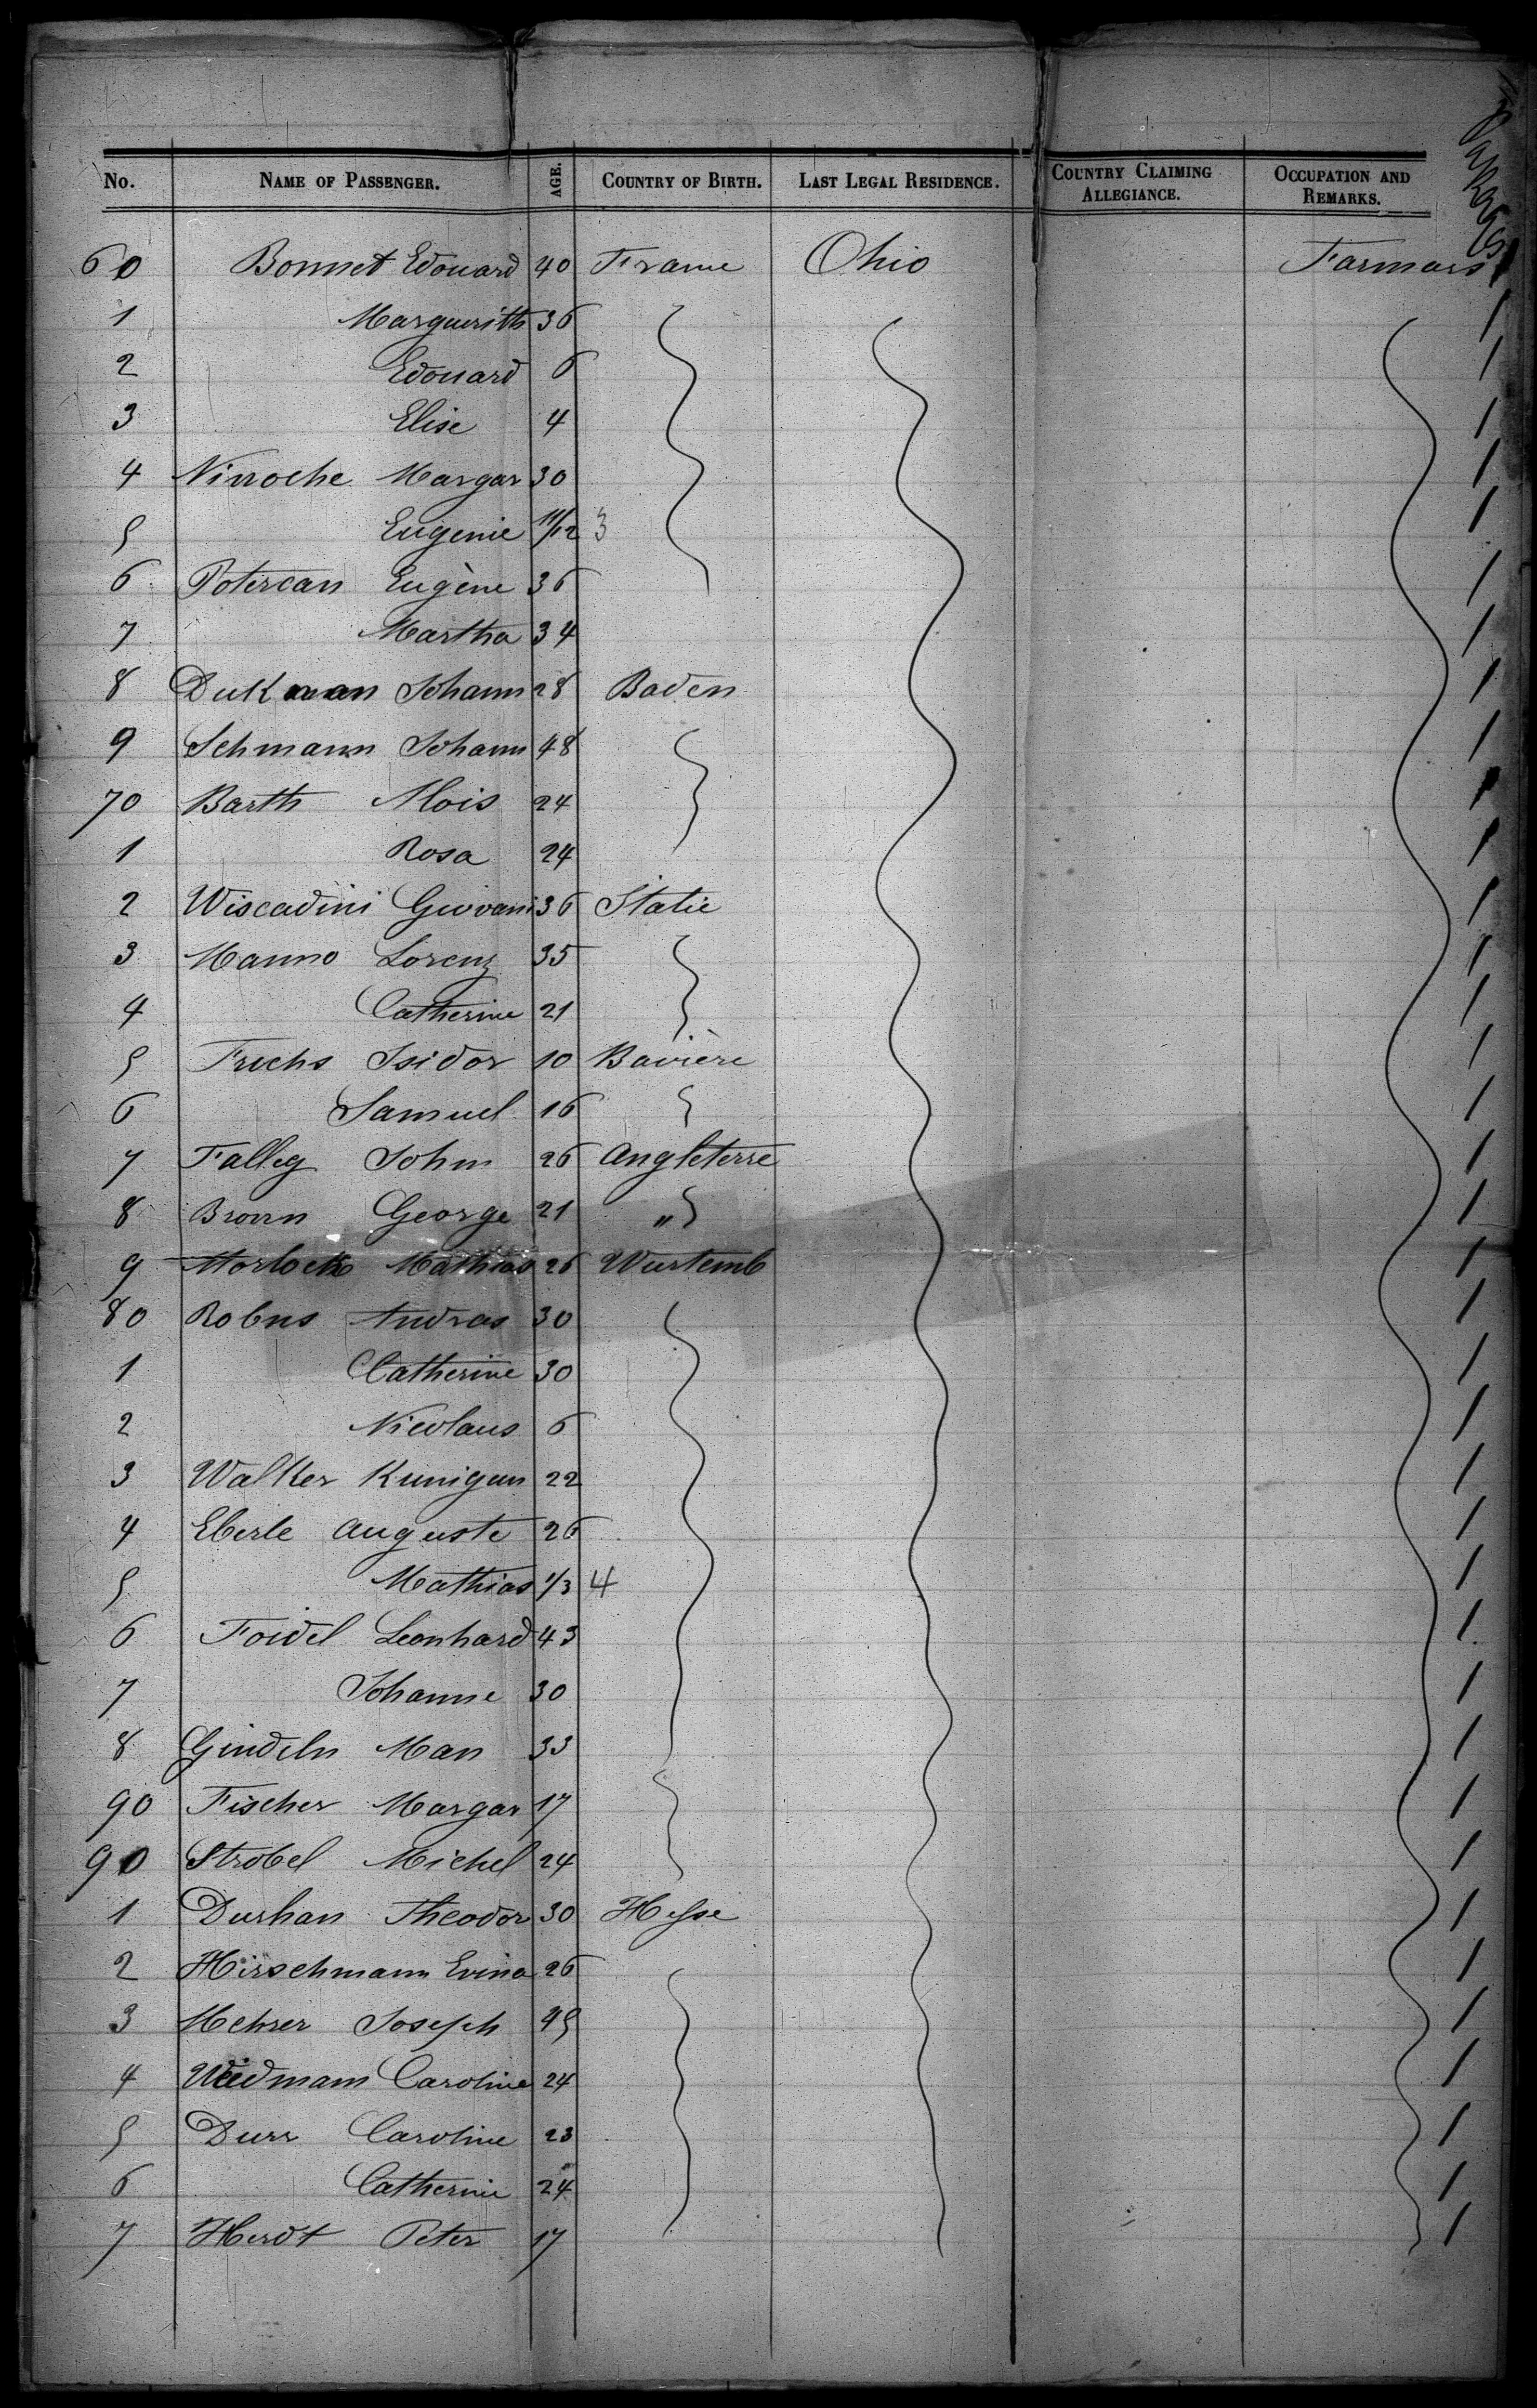 No. NAME OF PASSENGER. AGE. COUNTRY OF BIRTH. LAST LEGAL RESIDENCE. COUNTRY CLAIMING ALLEGIANCE. OCCUPATION AND REMARKS.
60 Bonnet Edouard 40 France Ohio Farmars
1 Marguerith 36
2 Edouard 6
3 Elise 4
4 Ninoche Margar 30
5 Eugenie 11/12 3
6 Potercan Eugène 36
7 Martha 34
8 Dukman Johann 28 Baden
9 Lehmann Johann 48
70 Barth Alois 24
1 Rosa 24
2 Wiscadini Giovani 36 Italie
3 Manno Lorenz 35
4 Catherine 21
5 Fuchs Isidor 10 Bavière
6 Samuel 16
7 Falleg John 26 Angleterre
8 Brown George 21 "
9 Horlock Mathias 26 Wurtemb
80 Robus Andras 30
1 Catherine 30
2 Nicolaus 6
3 Walker Kunigun 22
4 Eberle Auguste 26
5 Mathias 1/3 4
6 Foidel Leonhard 43
7 Johanne 30
8 Gindeln Man 33
90 Fischer Margar 17
90 Strobel Michel 24
1 Durhan Theodor 30 Hesse
2 Hirschmann Evina 26
3 Mehrer Joseph 45
4 Weidmann Caroline 24
5 Durr Caroline 23
6 Catherine 24
7 Herdt Peter 17